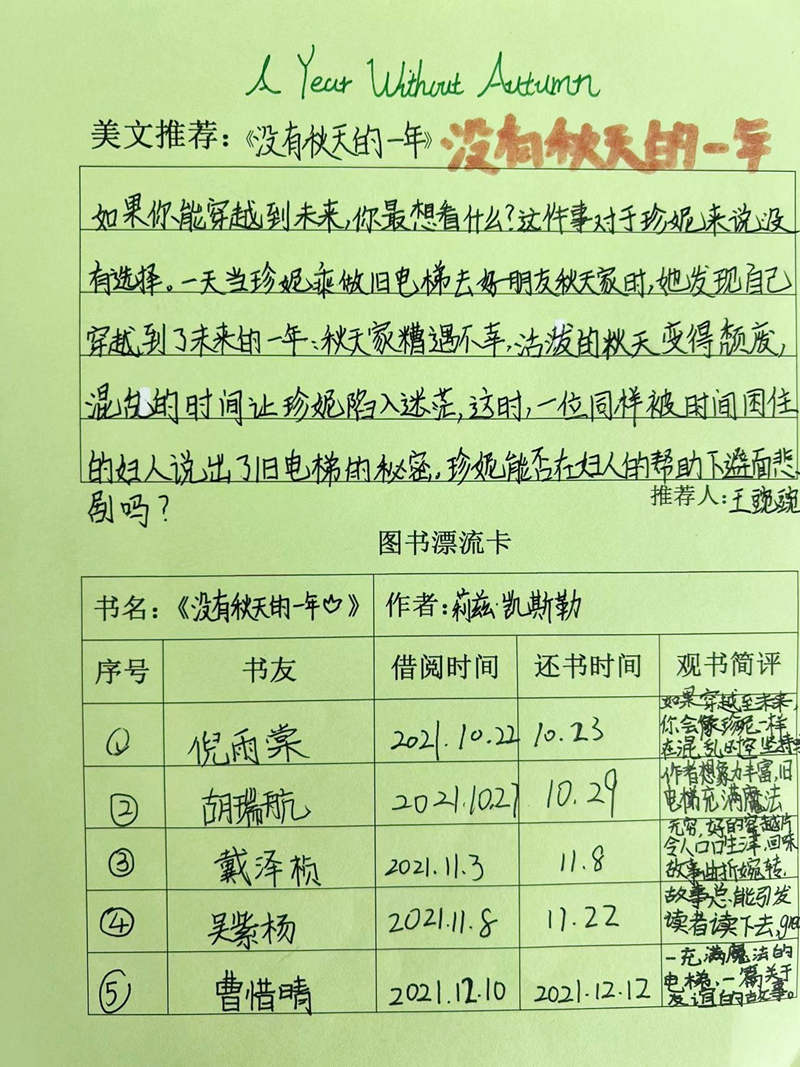 A Year Without Autumn
美文推荐：《没有秋天的一年》 没有秋天的一年
如果你能穿越到未来，你最想看什么？这件事对于珍妮来说没
有选择。一天当珍妮乘做旧电梯去好朋友秋天家时，她发现自己
穿越到了未来的一年：秋天家糟遇不幸，活泼的秋天变得颓废，
混乱的时间让珍妮陷入迷茫，这时，一位同样被时间困住
的妇人说出了旧电梯的秘密，珍妮能否在妇人的帮助下避面悲
剧吗？
推荐人：王婉婉
图书漂流卡
书名：《没有秋天的一年》 作者：莉兹·凯斯勒
序号 书友 借阅时间 还书时间 观书简评
① 倪雨棠 2021.10.22 10.23 如果穿越至未来，
你会像珍妮一样
在混乱时空坚持
② 胡瑞航 2021.10.27 10.29 作者想象力丰富，旧
电梯充满魔法
③ 戴泽桢 2021.11.3 11.8 无穷，好的穿越片
令人口口生津，回味
故事曲折婉转.
④ 吴紫杨 2021.11.8 11.22 故事总能引发
读者读下去，
⑤ 曹惜晴 2021.12.10 2021.12.12 一充满魔法的
电梯，一篇关于
友谊的故事。